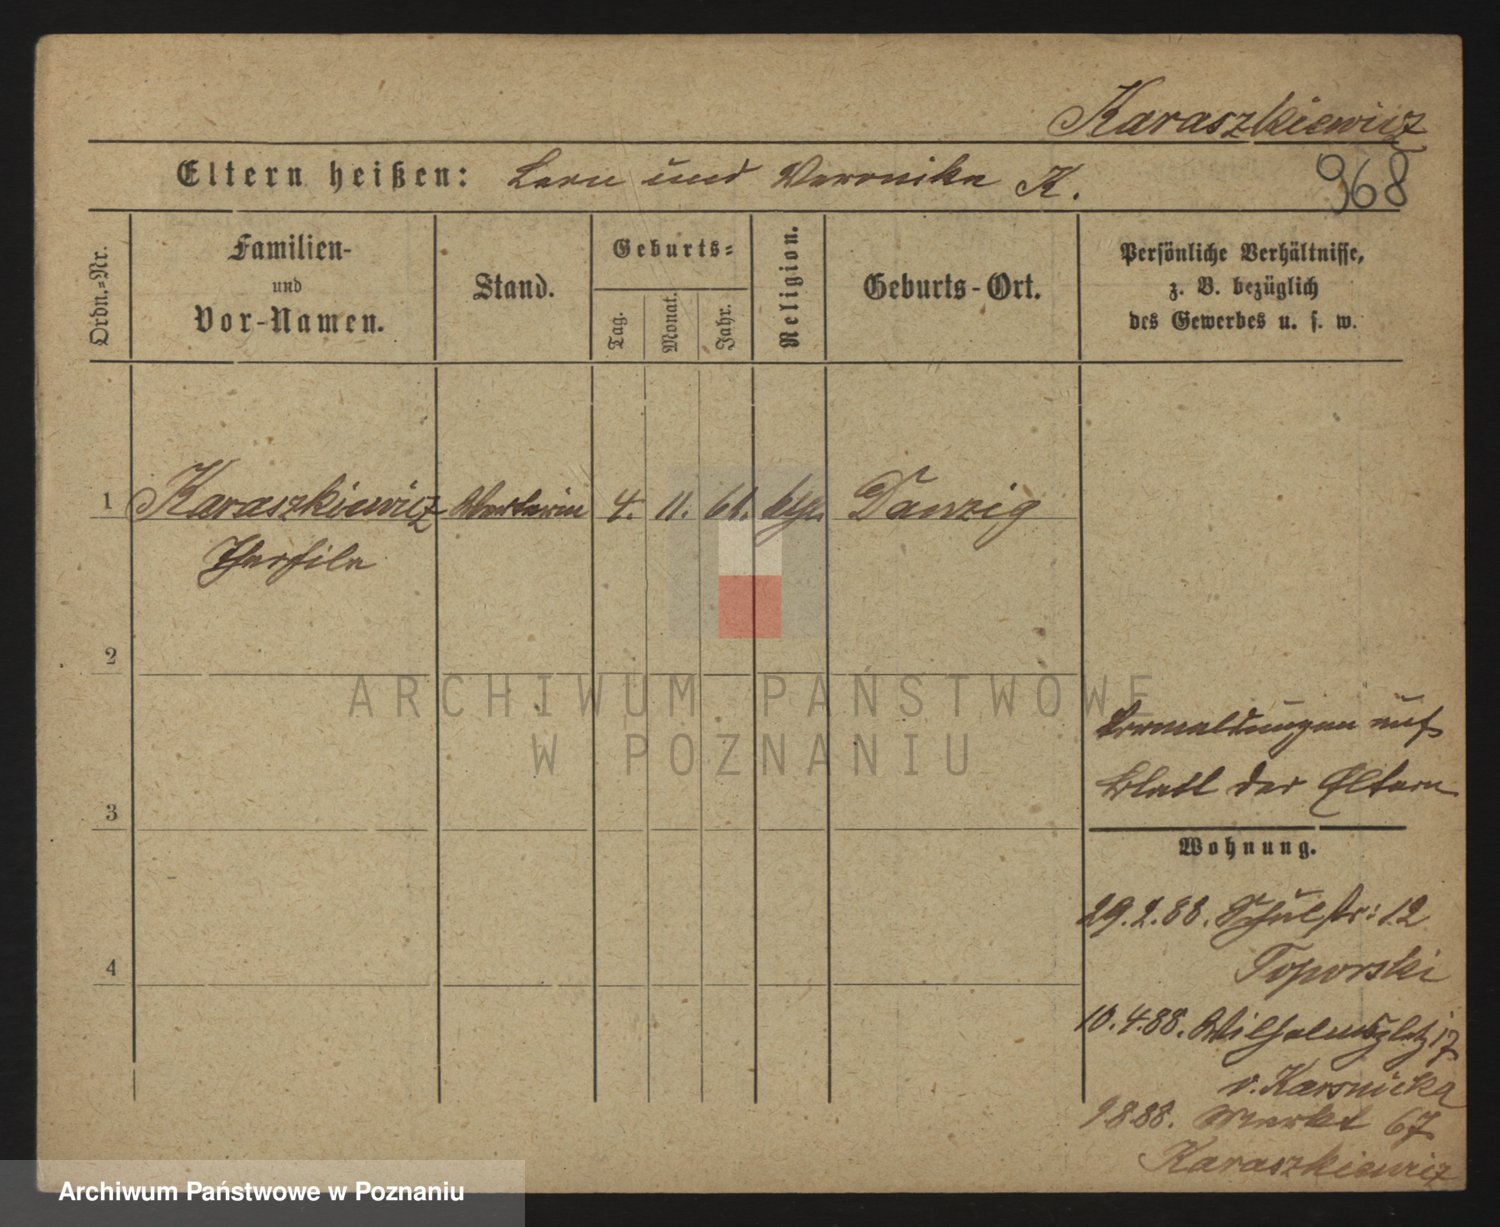 Karaszkiewicz
968
Eltern heißen: Leon und Veronika K.
Ordn.-Nr.
Familien-
und
Vor-Namen.
Stand.
Geburts-
Tag.
Monat.
Jahr.
Religion.
Geburts-Ort.
Persönliche Verhältnisse,
z. B. bezüglich
des Gewerbes u. s. w.
1 Karaszkiewicz 4. 11. 61. Danzig
2
3
4
ARCHIWUM PAŃSTWOWE
W POZNANIU
auf
Blatt der Eltern
Wohnung.
29.2.88. Schulstr: 12
Toporski
10.4.88. Wilhelmsplatz 17
v. Karsnicka
9.8.88. Markt 67
Karaszkiewicz
Archiwum Państwowe w Poznaniu